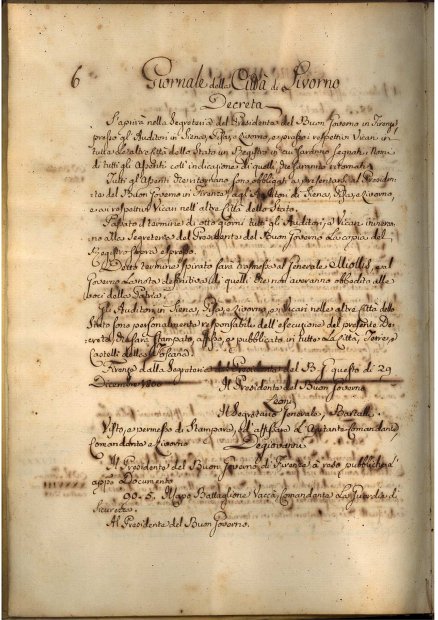 6 Giornale della Città di Livorno
Decreta
S'aprirà nella Segreteria del Presidente del Buon Governo in Firenze,
presso gl'Auditori in Siena, Pisa, e Livorno, e presso i respettivi Vicari in
tutte le altre Città dello Stato un Registro in cui saranno segnati i Nomi
di tutti gl'Assenti coll'indicazione di quelli, che saranno ritornati.
Tutti gl'Assenti che ritornano sono obbligati a presentarsi al Presidente
del Buon Governo in Firenze, agl'Auditori di Siena, Pisa, e Livorno,
e ai respettivi Vicari nell'altre Città dello Stato.
Passato il termine di otto giorni tutti gl'Auditori, e Vicari invieranno
alla Segreteria del Presidente del Buon Governo la copia del
Registro sopra espresso.
Detto termine spirato sarà trasmessa al Generale Miollis, e al
Governo la nota definitiva di quelli che non averanno obbedito alle
voci della Patria.
Gli Auditori in Siena, Pisa, e Livorno, e i Vicari nelle altre Città dello
Stato sono personalmente responsabili dell'esecuzione del presente Decreto,
che sarà stampato, affisso, e pubblicato in tutte le Città, Terre, e
Castelli della Toscana.
Firenze dalla Segreteria del Presidente del B. G. questo dì 29
Dicembre 1800
Il Presidente del Buon Governo
Leoni
Il Segretario Generale, Bartalli
Visto, e permesso di Stamparsi, ed affiggersi L'Aiutante Comandante,
Comandante a Livorno
Il Presidente del Buon Governo di Firenze à reso pubblico l'
appo Documento
Capo Battaglione Vacca, Comandante la Guardia di
Sicurezza.
Al Presidente del Buon Governo.